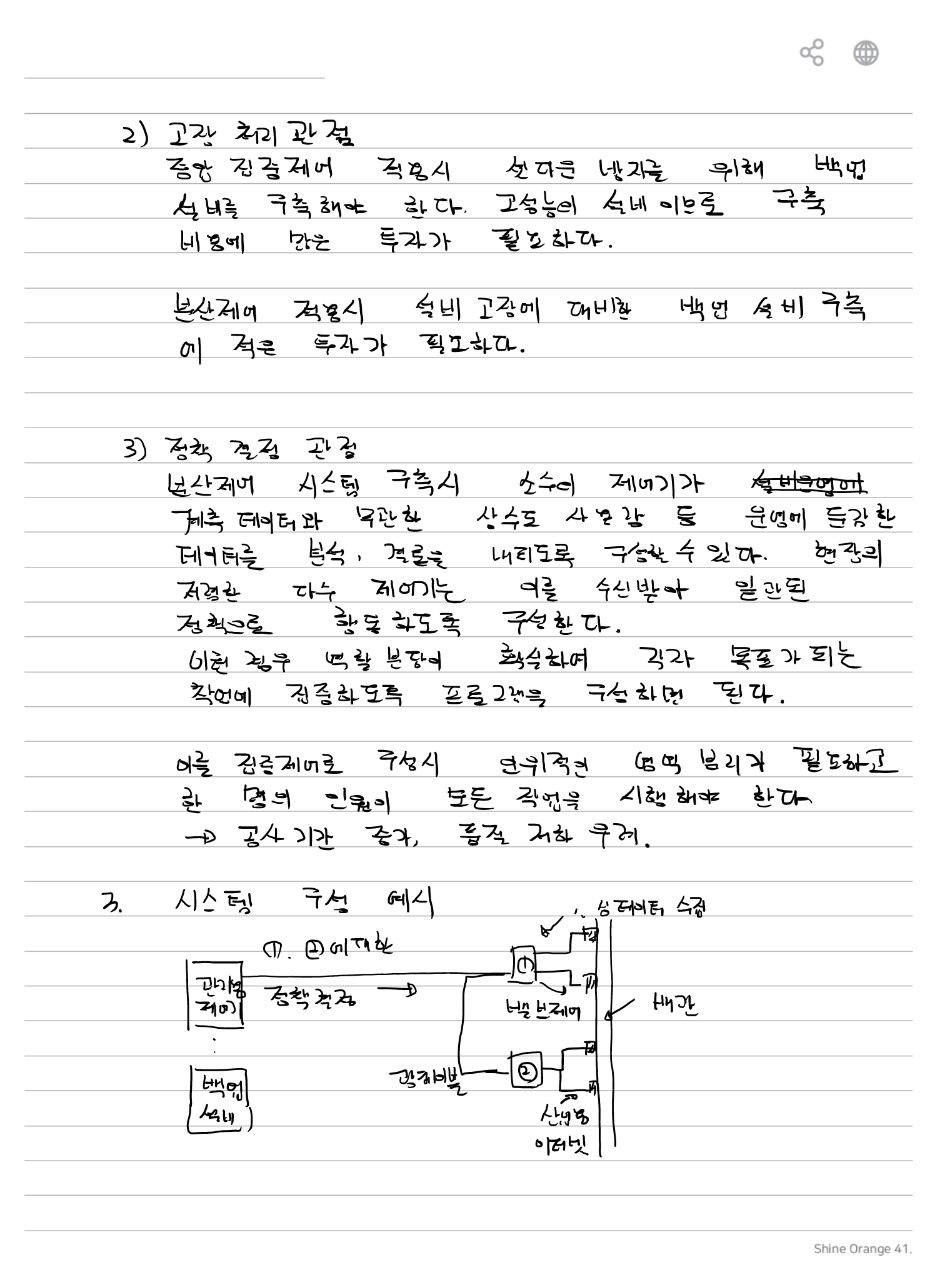 2) 고장 처리 관점
중앙 집중제어 적용시 셧다운 방지를 위해 백업
설비를 구축해야 한다. 고성능의 설비 이므로 구축
비용에 많은 투자가 필요하다.
분산제어 적용시 설비 고장에 대비한 백업 설비 구축
에 적은 투자가 필요하다.
3) 정책 결정 관점
분산제어 시스템 구축시 소수의 제어기가 설비운영에
계측 데이터와 무관한 상수도 사용량 등 운영에 민감한
데이터를 분석, 결론을 내리도록 구성할 수 있다. 현장의
저렴한 다수 제어기는 이를 수신받아 일관된
정책으로 행동하도록 구성한다.
이런 경우 역할 분담이 확실하여 각자 목표가 되는
작업에 집중하도록 프로그램을 구성하면 된다.
이를 집중제어로 구성시 단위적인 영역 분리가 필요하고
한 명의 인원이 모든 작업을 시행해야 한다
→ 공사 기간 증가, 품질 저하 우려.
3. 시스템 구성 예시
데이터 수집
①, ②에 대한
정책결정 →
관리용
제어기
①
밸브제어
배관
백업
설비
광케이블
②
산업용
이더넷
Shine Orange 41.